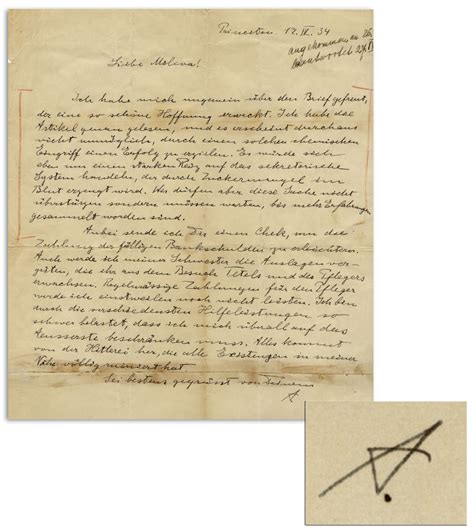 Princeton. 12. IV. 34
angekommen am 26.
beantwortet 27. IV
Liebe Mileva!
Ich habe mich ungemein über den Brief gefreut,
der eine so schöne Hoffnung erweckt. Ich habe die
Artikel genau gelesen, und es erscheint durchaus
nicht unmöglich, durch einen solchen chemischen
Eingriff einen Erfolg zu erzielen. Es würde sich
eben um einen starken Reiz auf das sekretorische
System handeln, der durch Zuckermangel im
Blut erzeugt wird. Wir dürfen aber diese Sache nicht
überstürzen sondern müssen warten, bis mehr Erfahrungen
gesammelt worden sind.
Anbei sende ich Dir einen Chek, um die
Zahlung der fälligen Bankschulden zu erleichtern.
Auch werde ich meiner Schwester die Auslagen ver-
güten, die ihr aus dem Besuch Tetels und des Pflegers
erwachsen. Regelmässige Zahlungen für den Pfleger
werde ich einstweilen noch nicht leisten. Ich bin
durch die verschiedensten Hilfeleistungen so
schwer belastet, dass ich mich überall auf das
Äusserste beschränken muss. Alles kommt
von der Hitlerei her, die alle Existenzen in meiner
Nähe völlig ruiniert hat
Sei bestens gegrüsst von Deinem
A.
A.